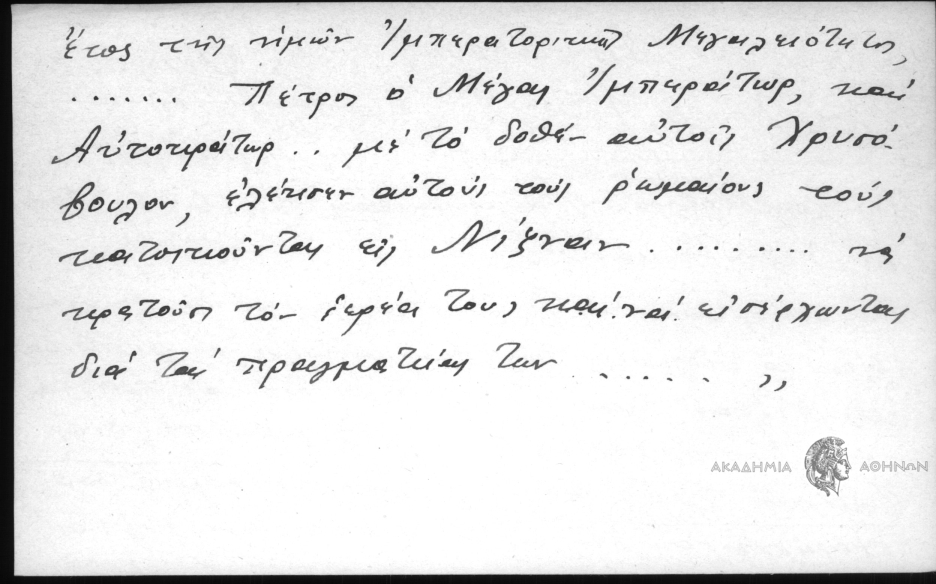 ἔτος τῆς ἡμῶν Ἰμπερατορικῆς Μεγαλειότητος,
....... Πέτρος ὁ Μέγας Ἰμπεράτωρ, καί
Αὐτοκράτωρ .. μέ τό δοθέν αὐτοῖς Χρυσό-
βουλον, ἐλέησεν αὐτούς τούς ῥωμαίους τούς
κατοικοῦντας εἰς Νίζναν ......... νά
κρατοῦσι τόν ἱερέα τους καί νά εἰσέρχωνται
διά τάς πραγματείας των ...... ,,
ΑΚΑΔΗΜΙΑ ΑΘΗΝΩΝ